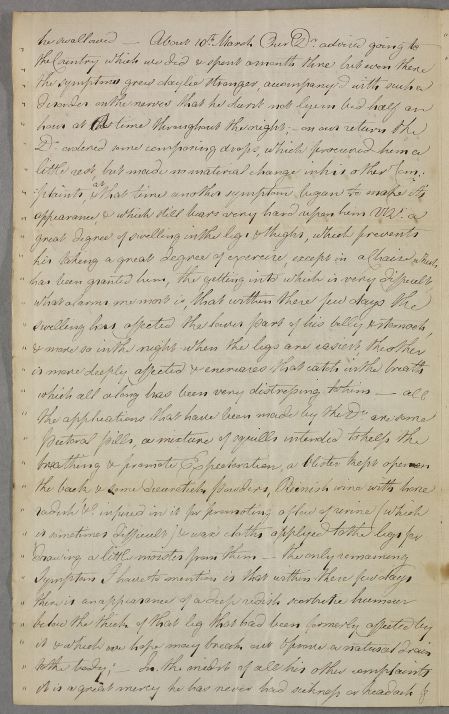 he swallowed — About 10th March Our Dr. advised going to
the Country which we did & spent a month there but even there
the symptoms grew dayly stronger, accompany'd with such a
disorder on the nerves that he durst not ly in bed half an
hour at a time throughout the night; — on our return the
Dr. ordered some composing drops, which procured him a
little rest, but made no material change in his other Com:
:plaints, at that time another symptom began to make its
appearance & which still bears very hard upon him Vizt. a
great degree of swelling in the legs & thighs, which prevents
his taking a great degree of exercise except in a Chaise which
has been granted him, the getting into which is very difficult
what alarms me most is, that within these few days the
swelling has affected the lower part of his belly & stomach,
& more so in the night when the legs are easiest the other
is more deeply affected & encreases that catch in the breath
which all along has been very distressing to him — all
the applications that have been made by the Dr. are some
Pectoral pills, a mixture of squills intended to help the
breathing & promote Expectoration, a blister kept open on
the back, & some diuretick powders, Rhinish wine with horse
radish &c. infused in it for promoting a flow of urine (which
is sometimes difficult) & wax cloths applyed to the legs for
drawing a little moister from them — the only remaining
Symptom I have to mention is that within these few days
there is an appearance of a deep redish scorbutic humour
below the thick of that leg that had been formerly affected by
it & which we hope may break out & prove a natural drain
to the body; — In the midst of all his other complaints
it is a great mercy he has never had sickness or headach